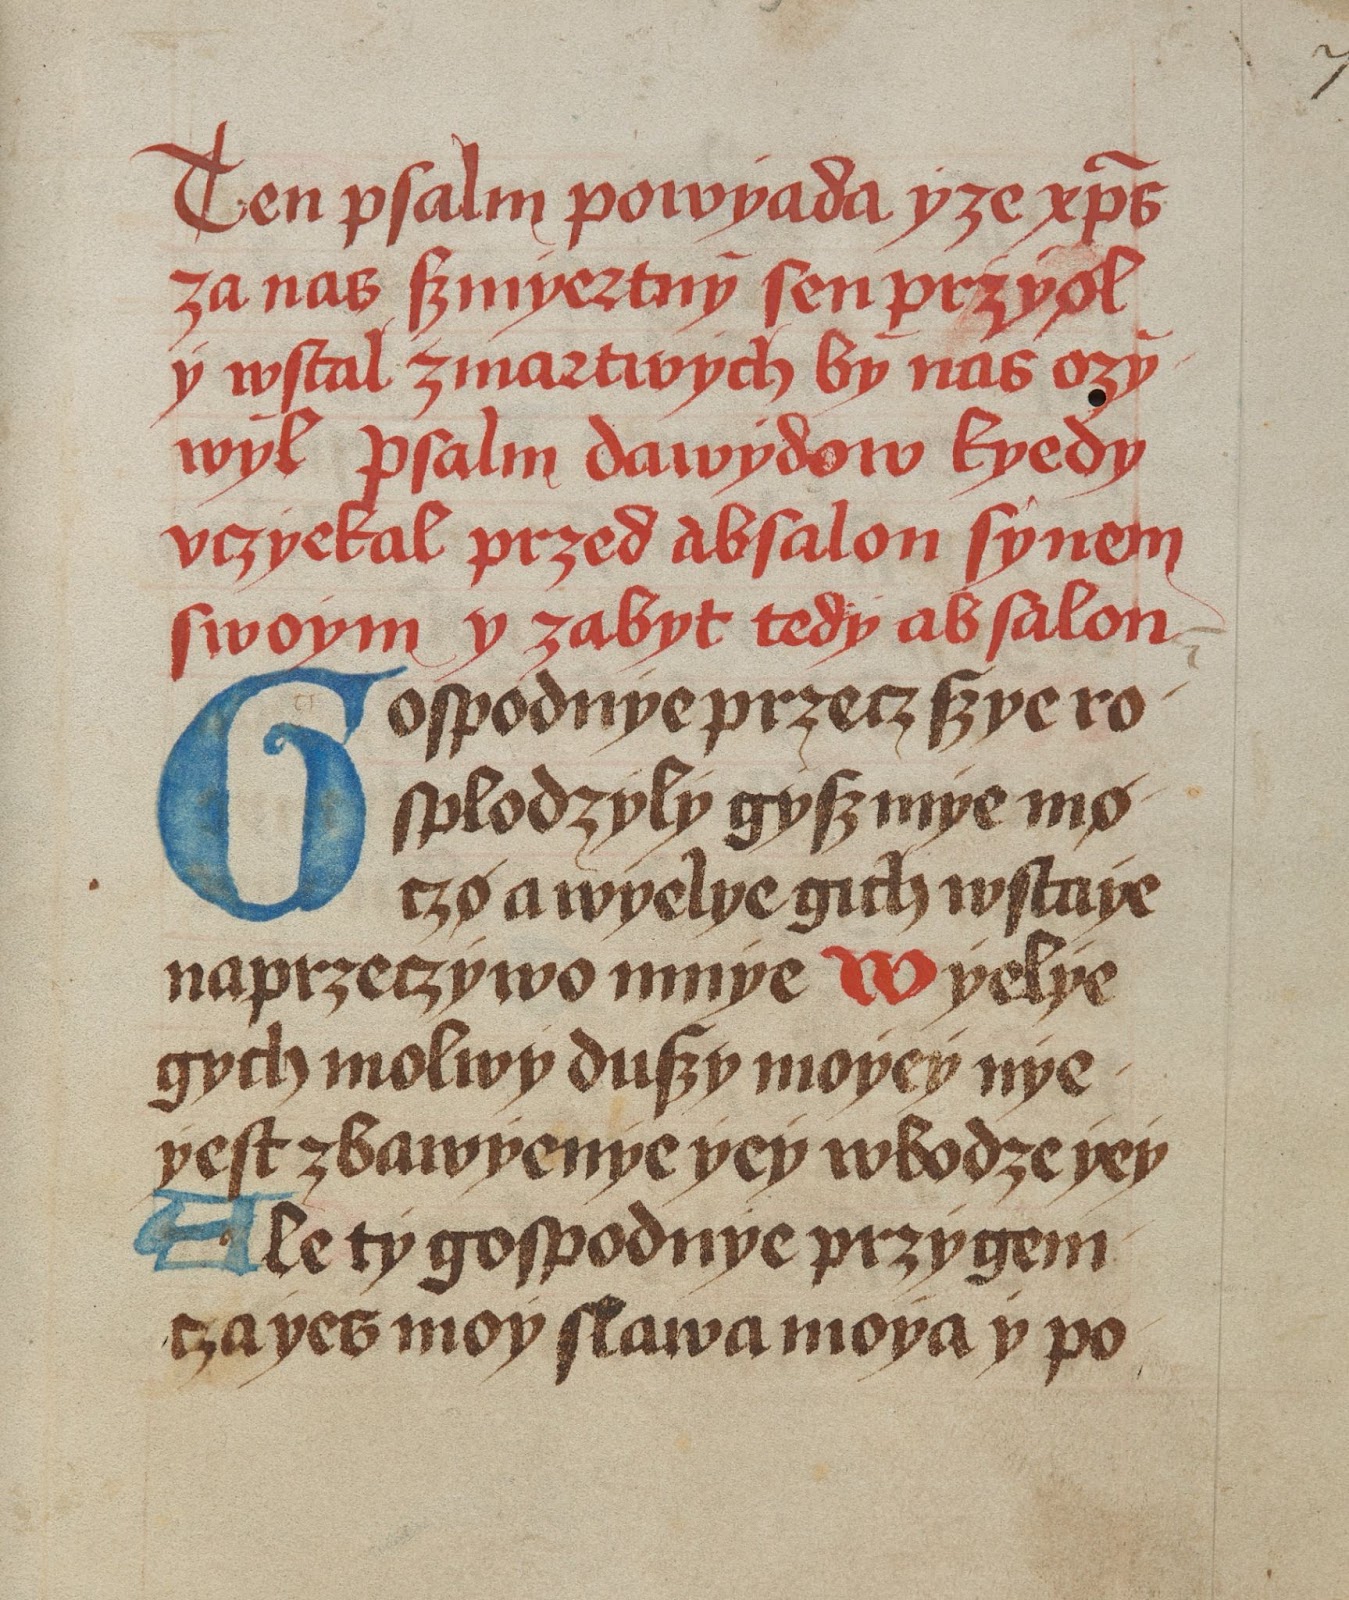 Ten psalm powÿada ÿze xp̄s
za nas ſzmÿertnÿ sen przÿøl
ÿ wſtal zmartwÿch bÿ nas ozÿ
wÿl psalm dawÿdow kyedy
vczÿekal przed abſalon ſÿnem
swoÿm y zabyt tedÿ abſalon
Goſpodnÿe przecz ſzÿe ro
ſplodzÿlÿ gyſz mÿe mø
czø a wyelye gich wſtaÿe
naprzeczÿwo mnÿe Wÿelÿe
gÿch molwÿ duſzy moÿeÿ nÿe
ÿeſt zbawÿenÿe ÿeÿ wbodze ÿeÿ
Ale tÿ goſpodnÿe przÿgem
cza ÿes moÿ ſlawa moya ÿ po
7